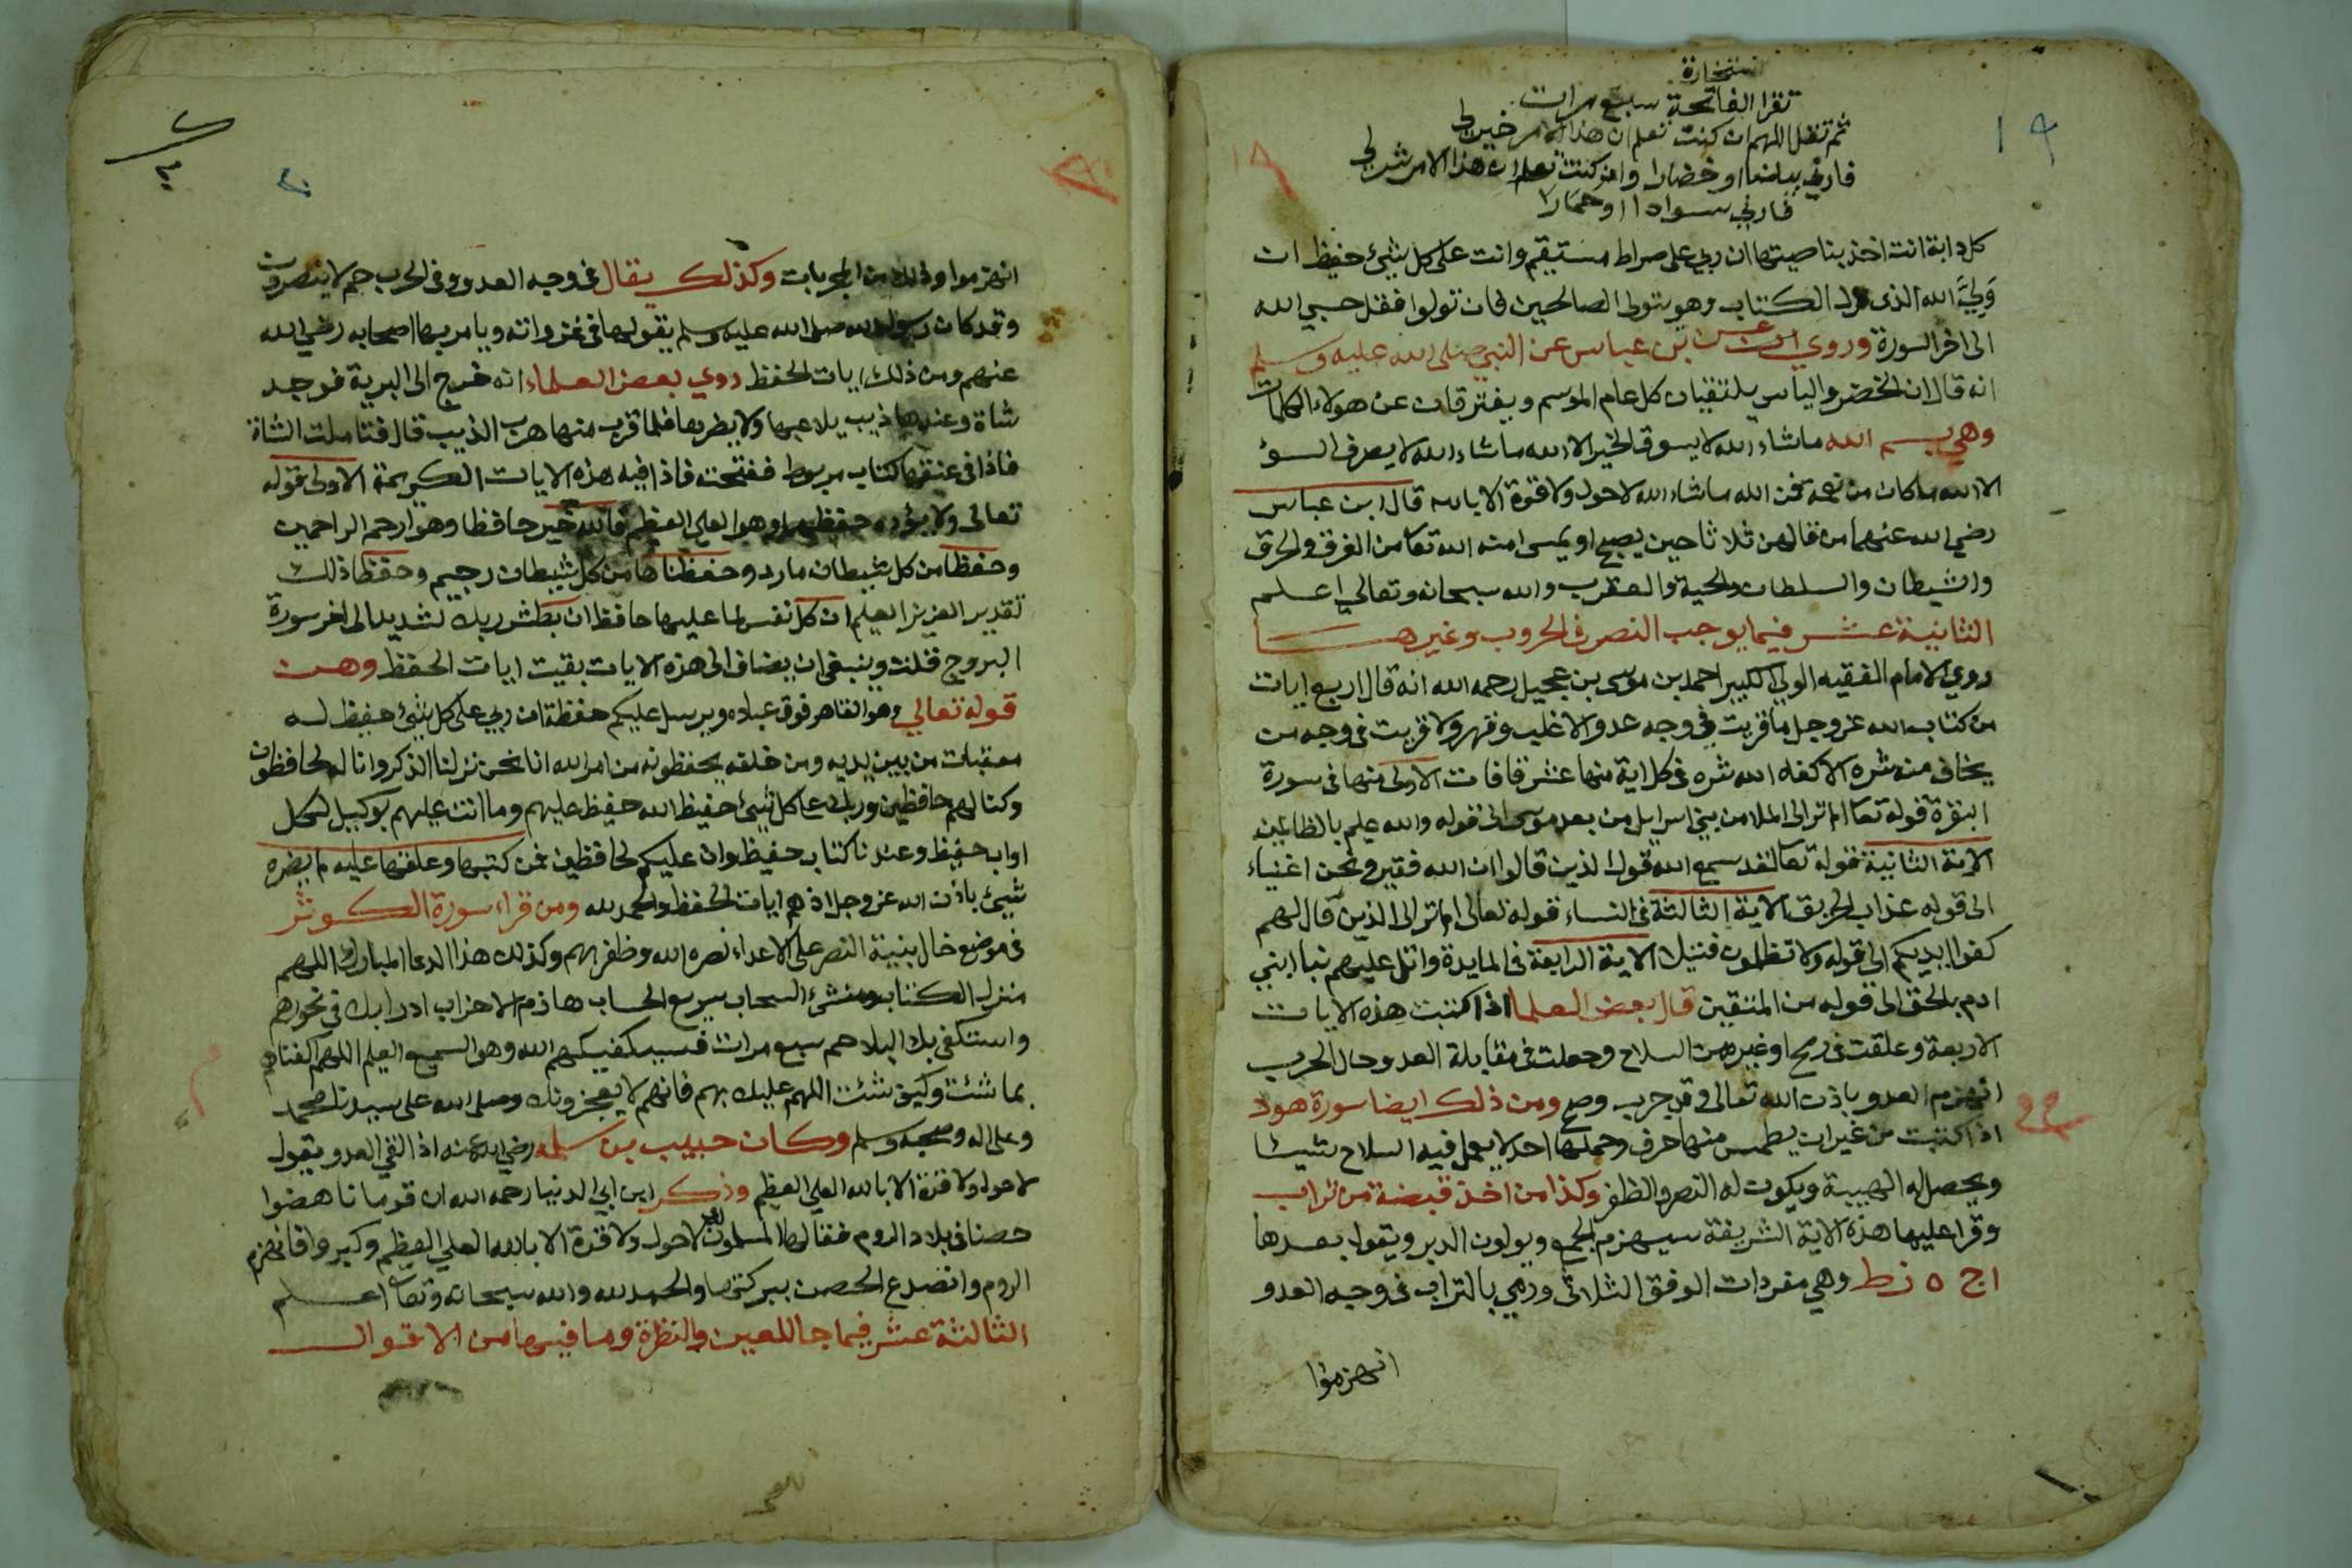 استخارة
تقرا الفاتحة سبع مرات
ثم تقل اللهم ان كنت تعلم ان هذا الامر خير لي
فارني بياضا او خضارا وان كنت تعلم ان هذا الامر شر لي
فارني سوادا او حمارا
١٩
١٩
كل دابة انت اخذ بناصيتها ان ربي على صراط مستقيم وانت على كل شيئ حفيظ ان
وَلِيَّ الله الذى نزل الكتاب وهو يتولى الصالحين فان تولوا فقل حسبي الله
الى اخر السورة وروي عن بن عباس عن النبي صلى الله عليه وسلم
انه قال ان الخضر والياس يلتقيان كل عام الموسم ويفترقان عن هولاء الكلمات
وهي بسم الله ماشاء الله لا يسوق الخير الا الله ماشاء الله لا يصرف السؤ
الا الله ماكان من نعمة فمن الله ماشاء الله لاحول ولاقوة الا بالله قال ابن عباس
رضي الله عنهما من قالهن ثلاثا حين يصبح او يمسى امنه الله تعا من الغرق والحرق
والشيطان والسلطان والحية والعقرب والله سبحانه وتعالي اعلم
الثانية عشر فيما يوجب النصر في الحروب وغيرها
روي الامام الفقيه الولي الكبير احمد بن موسى بن عجيل رحمه الله انه قال اربع ايات
من كتاب الله عز وجل ما قريت في وجه عدو الا غلب وقهر ولا قريت فى وجه من
يخاف منه شره الا كفاه الله شره فى كل اية منها عشر قافات الاولى منها فى سورة
البقرة قوله تعا الم تر الى الملا من بني اسرايل من بعد موسى الى قوله والله عليم بالظالمين
الاية الثانية قوله تعا لقد سمع الله قول الذين قالوا ان الله فقير ونحن اغنياء
الى قوله عذاب الحريق الاية الثالثة في النساء قوله تعالى الم تر الى الذين قال لهم
كفوا ايديكم الى قوله ولا تظلمون فتيلا الاية الرابعة فى المايدة واتل عليهم نبا ابني
ادم بالحق الى قوله من المتقين قال بعض العلما اذا كتبت هذه الايات
الاربعة وعلقت فى رمح او غيره من السلاح وجعلت فى مقابلة العدو حال الحرب
انهزم العدو باذن الله تعالى وقد جرب وصح ومن ذلك ايضا سورة هود
اذا كتبت من غير ان يطمس منها حرف وحملها احد لا يعمل فيه السلاح شيئا
ويحصل له الهيبة ويكون له النصر والظفر وكذا من اخذ قبضة من تراب
وقرا عليها هذه الاية الشريفة سيهزم الجمع ويولون الدبر ويقول بعدها
ا ج ه ز ط وهي مفردات الوفق الثلاثي ورمي بالتراب فى وجه العدو
انهزموا
٢٠
انهزموا وذلك من المجربات وكذلك يقال فى وجه العدو وفى الحرب حم لا ينصرون
وقد كان رسول الله صلى الله عليه وسلم يقولها فى غزواته ويامر بها اصحابه رضي الله
عنهم ومن ذلك ايات الحفظ روي بعض العلماء انه خرج الى البرية فوجد
شاة وعندها ذيب يلاعبها ولا يضرها فلما قرب منها هرب الذيب قال فتاملت الشاة
فاذا فى عنقها كتاب مربوط ففتحته فاذا فيه هذه الايات الكريمة الاولى قوله
تعالى ولا يؤده حفظهما وهو العلي العظيم فالله خير حافظا وهو ارحم الراحمين
وحفظا من كل شيطان مارد وحفظناها من كل شيطان رجيم وحفظا ذلك
تقدير العزيز العليم ان كل نفس لما عليها حافظ ان بطش ربك لشديد الى اخر سورة
البروج قلت وينبغى ان يضاف الى هذه الايات بقيت ايات الحفظ وهن
قوله تعالي وهو القاهر فوق عباده ويرسل عليكم حفظة ان ربي على كل شيئ حفيظ له
معقبات من بين يديه ومن خلفه يحفظونه من امر الله انا نحن نزلنا الذكر وانا له لحافظون
وكنا لهم حافظين وربك على كل شيئ حفيظ الله حفيظ عليهم وما انت عليهم بوكيل لكل
اواب حفيظ وعندنا كتاب حفيظ وان عليكم لحافظين فمن كتبها وعلقها عليه لم يضره
شيئ باذن الله عز وجل اذ هم ايات الحفظ والحمد لله ومن قراء سورة الكوثر
فى موضع خال بنية النصر على الاعداء نصره الله وظفر بهم وكذلك هذا الدعا المبارك اللهم
منزل الكتاب ومنشئ السحاب سريع الحساب هازم الاحزاب ادرا بك في نحورهم
واستكفي بك البلا حم سبع مرات فسيكفيكهم الله وهو السميع العليم اللهم اكفناهم
بما شئت وكيف شئت اللهم عليك بهم فانهم لا يعجزونك وصلى الله على سيدنا محمد
وعلى اله وصحبه وسلم وكان حبيب بن سلمه رضي الله عنه اذا لقي العدو يقول
لاحول ولا قوة الا بالله العلي العظيم وذكر ابن ابي الدنيا رحمه الله ان قوما ناهضوا
حصنا فى بلاد الروم فقالها المسلمون لاحول ولا قوة الا بالله العلي العظيم وكبروا فانهزم
الروم وانصدع الحصن ببركتها والحمد لله والله سبحانه وتعا اعلم
الثالثة عشر فيما جا للعين والنظرة وما فيها من الاقوال